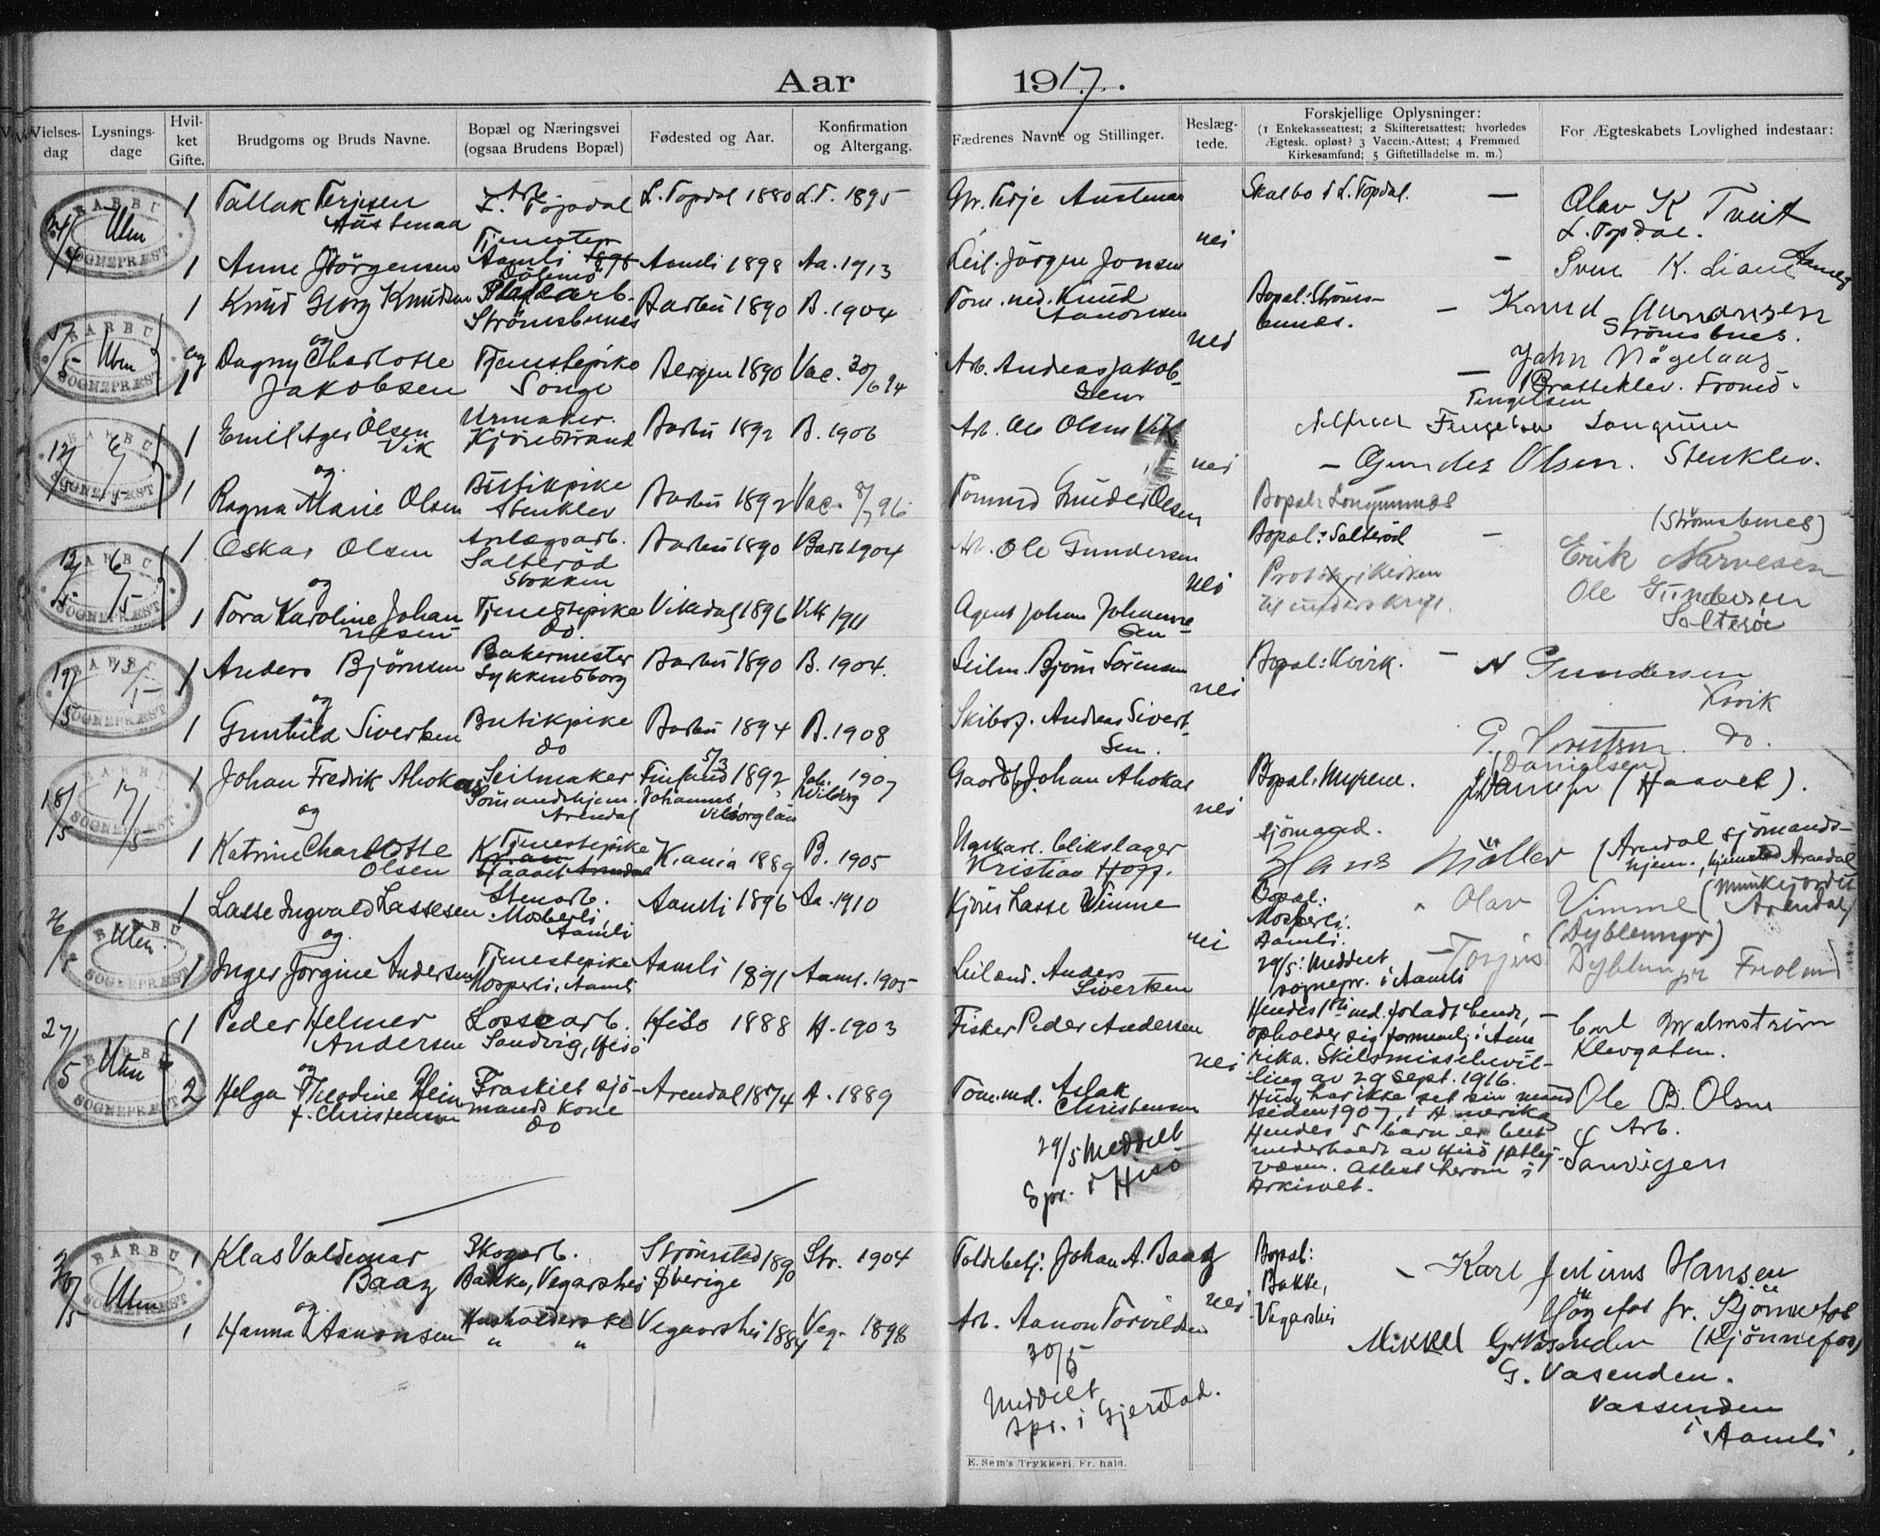 Aar 1917.
Vielses-dag
Lysnings-dage
Hvil-ket Gifte.
Brudgoms og Bruds Navne.
Bopæl og Næringsvei (ogsaa Brudens Bopæl)
Fødested og Aar.
Konfirmation og Altergang.
Fædrenes Navne og Stillinger.
Beslæg-tede.
Forskjellige Oplysninger: (1 Enkekasseattest; 2 Skifteretsattest; hvorledes Ægtesk. opløst? 3 Vaccin.-Attest; 4 Fremmed Kirkesamfund; 5 Giftetilladelse m. m.)
For Ægteskabets Lovlighed indestaar:
BARBU SOGNEPRÆST
1 Tallak Terjesen Austenaa
Arb. L. Topdal
L. Topdal 1880 L.T. 1895
Terje Austenaa
Skalbo i L. Topdal. —
Olav K Tveit
L. Topdal.
nei
1 Anne Jörgensen
Aamli
Aamli 1898 Aa. 1913
Leil. Jörgen Jonsen
— Sven K. Liane
BARBU SOGNEPRÆST
1 Knud Georg Knudsen
Strömsbunes
Barbu 1890 B. 1904
Töm. ned. Knud Aanonsen
Bopæl: Ströms-bunes.
— Knud Aanonsen
Strömsbnes.
og
nei
1 Dagny Charlotte Jakobsen
Tjenestepike Songe
Bergen 1890 Vac. 30/6 94
Arb. Andreas Jakob-sen
— John Nögelaas
Bratteklev. Froland.
BARBU SOGNEPRÆST
12/5 6/5
1 Emil Ager Olsen Vik
Urmaker. Kjörestrand
Barbu 1892 B. 1906
Arb. Ole Olsen Vik
Alfred Tengelsen Longum
og
nei
— Gunder Olsen. Stenklev.
1 Ragna Marie Olsen
Butikpike Stenklev
Barbu 1892 Vac. 8/7 96
Tömmd Gunder Olsen
Bopæl: Longumnæs
BARBU SOGNEPRÆST
12/5 6/5
1 Oskar Olsen
Anlægsarb. Salteröd Stokken
Barbu 1890 Barb 1904
Arb. Ole Gundersen
Bopæl: Salteröd —
(Strömsbunes)
Erik Narvesen
og
nei
Ole Gundersen
Salteröd
1 Tora Karoline Johannesen
Tjenestepike do.
Vikedal 1896 Vik 1911
Agent Johan Johanne-sen
BARBU SOGNEPRÆST
19/5 13/5
1 Anders Björnsen
Bakermester Lykkensborg
Barbu 1890 B. 1904.
Seilm. Björn Sörensen
Bopæl: Kvik. —
A Gundersen
Kvik
og
nei
1 Gunhild Sivertsen
Butikpike do
Barbu 1894 B. 1908
Skibsf. Andreas Sivert-sen.
do.
BARBU SOGNEPRÆST
18/5 17/5
1 Johan Fredrik Ahokas
Seilmaker Sömandshjem. Arendal
Finland 5/3 1892 Johannes, Viborg län
Joh. 1907 Viborg
Gaardbr. Johan Ahokas
Bopæl: Myrene.
(Danielsen)
(Haavet).
og
nei
sjömand.
1 Katrine Charlotte Olsen
Tjenestepike
Kr.ania 1889 B. 1905
blikslager Kristian Hoff.
Hans Möller (Arendal sjömands-hjem., Arendal
BARBU SOGNEPRÆST
1 Lasse Ingvald Lassesen
Stenarb. Mosberli, Aamli
Aamli 1896 Aa. 1910
Kjöres Lasse Vimme
Bopæl: Mosperli. Aamli.
Olav Vimme (Munkejordet Arendal)
og
nei
(Dyblemyr)
1 Inger Jörgine Andersen
Tjenestepike Mosperli. Aamli
Aamli 1891 Aaml. 1905
Leiland. Anders Sivertsen
29/5: Meddelt sognepr. i Aamli
— Torjus Dyblemyr Froland
BARBU SOGNEPRÆST
27/5
1 Peder Helmer Andersen
Lossearb. Sandvig, Hisö
Hisö 1888 H. 1903
Fisker Peder Andersen
Hendes 1ste md. forladt hende, — opholder sig formentl. i Ame-rika. Skilsmissebevil-ling av 29 Sept. 1916. Hun har ikke set sin mand siden 1907, i Amerika Hendes 5 barn er blit underholdt av Hisö fattig-væsen. Attest herom i Arkivet.
Carl Malmström
Klevgaten.
og
nei
2 Helga Theodine Hein f. Christensen
Fraskilt sjö-mands kone do
Arendal 1874 A. 1889
Töm.md. Aslak Christensen
Ole B. Olsen
Arb.
Sanvigen
29/5 Meddelt Spr. i Hisö
BARBU SOGNEPRÆST
30/5
1 Klas Valdemar Baaz
Skogarb. Bakke, Vegarshei
Strömstad 1890 Sverige
Str. 1904
Toldbetj. Johan A. Baaz
Bopæl: Bakke, Vegarshei
— Karl Julius Hansen
og
nei
1 Hanna Aanonsen
Husholderske " "
Vegaarshei 1884 Veg. 1898
Arb. Aanon Torvildsen
Mikkel G. Vasenden (Kjönnefos)
G. Vasenden.
Vassenden
i Aamli.
30/5 Meddelt spr. i Gjerstad.
E. Sem's Trykkeri, Fr. hald.